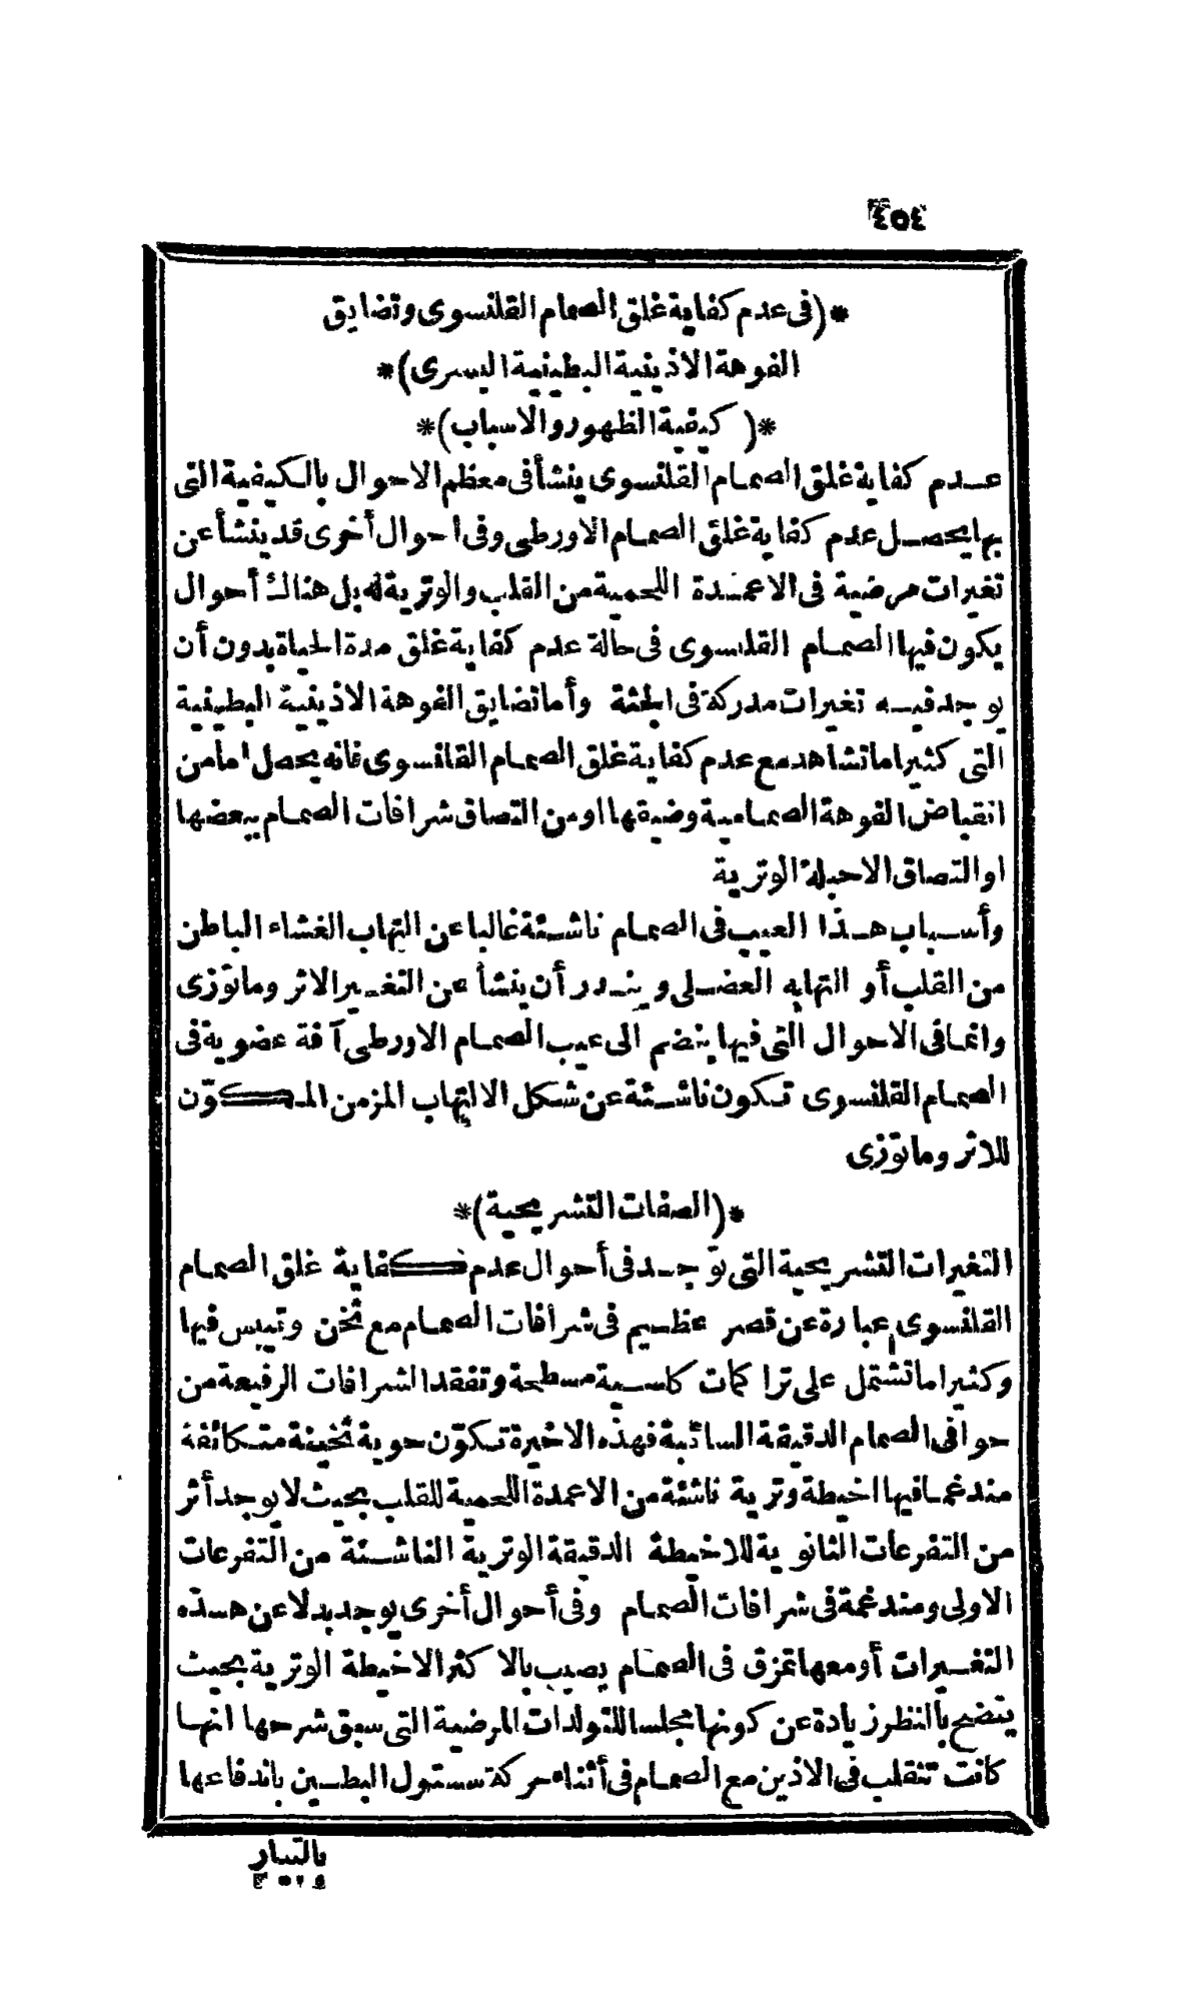 ٤٥٤
*(فى عدم كفاية غلق الصمام القلنسوى وتضايق
الفوهة الاذينية البطينية اليسرى)*
*(كيفية الظهور والاسباب)*
عدم كفاية غلق الصمام القلنسوى ينشأ فى معظم الاحوال بالكيفية التى
بها يحصل عدم كفاية غلق الصمام الاورطى وفى احوال أخرى قد ينشأ عن
تغيرات مرضية فى الاعمدة اللحمية من القلب والوترية له بل هناك أحوال
يكون فيها الصمام القلنسوى فى حالة عدم كفاية غلق مدة الحياة بدون أن
يوجد فيه تغيرات مدركة فى الجثة وأما تضايق الفوهة الاذينية البطينية
التى كثيرا ما تشاهد مع عدم كفاية غلق الصمام القلنسوى فانه يحصل اما من
انقباض الفوهة الصمامية وضيقها او من التصاق شرافات الصمام ببعضها
او التصاق الاحبلة الوترية
وأسباب هذا العيب فى الصمام ناشئة غالبا عن التهاب الغشاء الباطن
من القلب أو التهابه العضلى ويندر أن ينشأ عن التغير الاثر وماتوزى
وانما فى الاحوال التى فيها ينضم الى عيب الصمام الاورطى آفة عضوية فى
الصمام القلنسوى تكون ناشئة عن شكل الالتهاب المزمن المكوّن
للاثر وماتوزى
*(الصفات التشريحية)*
التغيرات التشريحية التى توجد فى أحوال عدم كفاية غلق الصمام
القلنسوى عبارة عن قصر عظيم فى شرافات الصمام مع ثخن وتيبس فيها
وكثيرا ما تشتمل على تراكمات كلسية مسطحة وتفقد الشرافات الرفيعة من
حوافى الصمام الدقيقة السائبة فهذه الاخيرة تكوّن حوية ثخينة متكاثفة
مندغما فيها اخيطة وترية ناشئة من الاعمدة اللحمية للقلب بحيث لا يوجد أثر
من التفرعات الثانوية للاخيطة الدقيقة الوترية الناشئة من التفرعات
الاولى ومندغمة فى شرافات الصمام وفى أحوال أخرى يوجد بدلا عن هذه
التغيرات أو معها تمزق فى الصمام يصيب بالاكثر الاخيطة الوترية بحيث
يتضح بالنظر زيادة عن كونها مجلسا للتولدات المرضية التى سبق شرحها انها
كانت تنقلب فى الاذين مع الصمام فى أثناء حركة سستول البطين باندفاعها
بالتيار